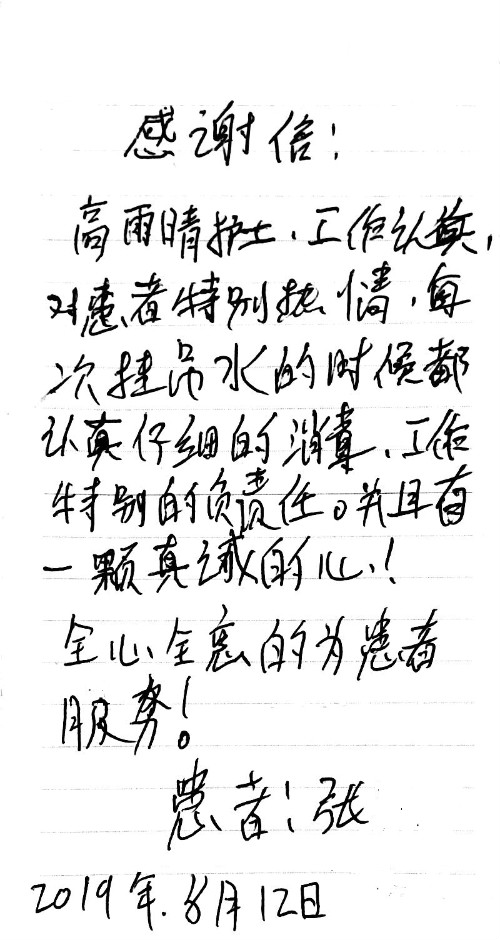 感谢信！
高雨晴护士、工作认真，
对患者特别热情，每
次挂吊水的时候都
认真仔细的消毒、工作
特别的负责任。并且有
一颗真诚的心！
全心全意的为患者
服务！
患者：张
2019年.8月12日